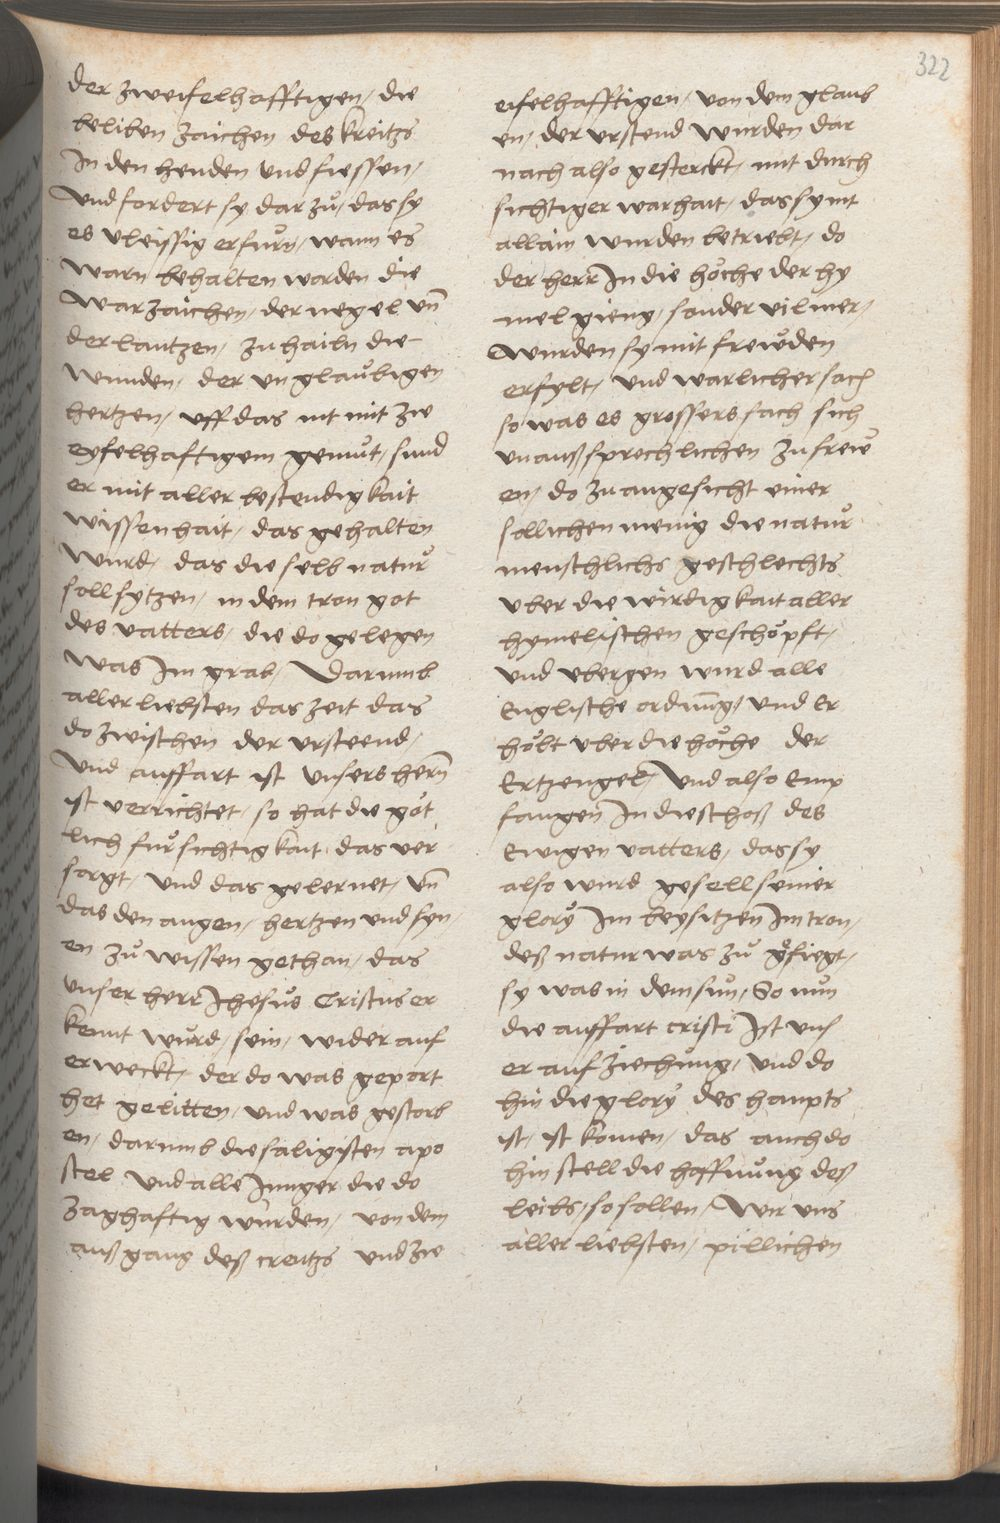 322
der zweifelhafftigen / die
beliben zaichen des kreitzs
In den henden vnd fiessen /
Vnd fordert sy dar zů / das sy
es vleissig erfůrn / wann es
warn behalten worden die
Warzaichen / der negel vn̄
der lantzen / zu hailn die
wunden / der vnglaůbigen
hertzen / vff das nit mit zw
eyfelhaftigem gemůt / sund
er mit aller bestendigkait
wissenhait / das gehalten
wurd / das die selb natůr
soll sytzen / in dem tron got
des vatters / die do gelegen
was Im grab / Darumb
aller liebsten das zeit das
do zwischen der vrsteend /
Vnd auffart ist vnsers hern̄
ist verrichtet / so hat die göt
lich fůrsichtigkait das ver
sorgt / vnd das gelernet / vn̄
das den augen / hertzen vnd syn
en zů wissen gethan / das
vnser herr Jhesůs Cristus er
kennt wůrd / sein / wider auf
erweckt / der do was geport
het gelitten / vnd was gestorb
en / darumb die saligisten apo
stel Vnd alle Junger die do
zaghaftig wurden / von dem
auß gang deß creutzs vnd zw
eifelhafftigen / von dem glaub
en / der vrstend wurden dar
nach also gesterckt / mit durch
sichtiger warhait / das sy nit
allain wurden betriebt / do
der herr In die höche der hy
mel gieng / sonder vil mer /
wurden sy mit frewden
erfylt / Vnd warlicher sach
so was es grossers sach sich
vnaußsprechlichen zu frew
en / do zu angesicht einer
sollichen menig die natůr
menschlichs geschlechts
vber die wirdigkait aller
hymelischen geschöpft /
vnd vbergen wurd alle
Englische ordnūng / vnd Er
höbt vber die höche der
Ertzengel / Vnd also emp
fangen In die schoß des
ewigen vatters / das sy
also wurd gesell seiner
glory Im beysitzen Im tron /
deß natur was zů gefiegt /
sy was in dem sůn / So nůn
die auffart cristi Ist vns
er aufziechůng / vnd do
hin die glory des haupts
ist / ist komen / das auch do
hin stell die hoffnůng deß
leibs / so sollen / wir vns
aller liebsten / pillichen